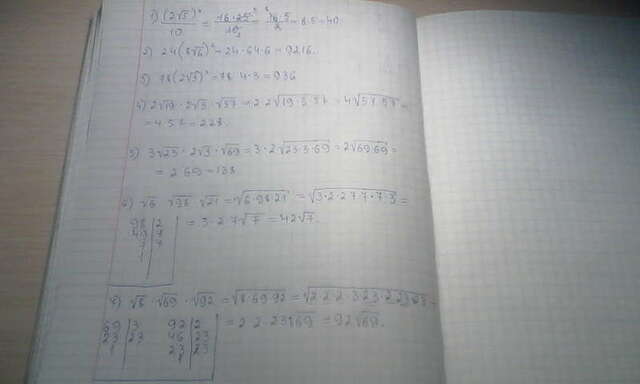 1) (2√5)⁴/10 = 16·25/10 = 16·5/2 = 8·5 = 40
2) 24(8√6)² = 24·64·6 = 9216.
3) 78(2√3)² = 78·4·3 = 936
4) 2√19 · 2√3 · √57 = 2·2√19·3·57 = 4√57·57 =
= 4·57 = 228.
5) 3√23 · 2√3 · √69 = 3·2√23·3·69 = 2√69·69 =
= 2·69 = 138
6) √6 √98 √21 = √6·98·21 = √3·2·2·7·7·7·3 =
98 | 2
49 | 7
7 | 7
1
= 3·2·7√7 = 42√7.
√8 · √69 · √92 = √8·69·92 = √2·2·2·3·23·2·23·23 =
69 | 3 92 | 2
23 | 23 46 | 23
1 23 | 23
1
= 2·2·23√69 = 92√69.